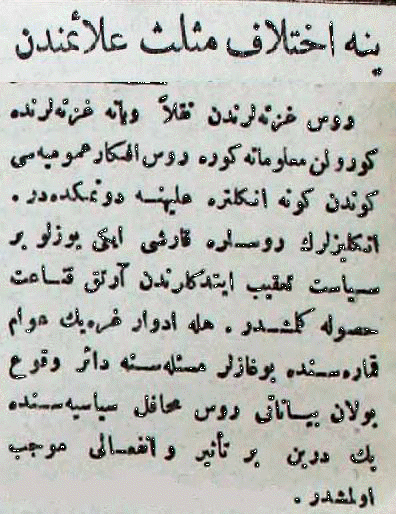 ینه اختلاف مثلث علائمندن
روس غزته‌لرندن نقلاً ویانه غزته‌لرنده
کورولن معلوماته کوره روس افکار عمومیه‌سی
کوندن کونه انکلتره علیهنه دونمکده‌در .
انکلیزلرك روسلره قارشی ایکی یوزلو بر
سیاست تعقیب ایتدکلرندن آرتق قناعت
حصوله کلمشدر . هله ادوار غره‌یك عوام
قماره‌سنده بوغازلر مسئله‌سنه دائر وقوع
بولان بیاناتی روس محافل سیاسیه‌سنده
پك درین بر تأثیر و انفعالی موجب
اولمشدر .